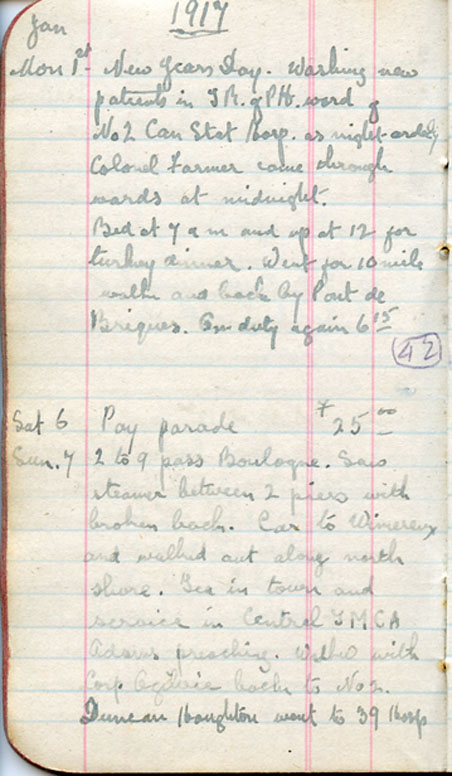 1917
Jan
Mon 1st New Years Day. Washing new
patients in word of
No 2 Can Stat Hosp. as night orderly
Colonel Farmer came through
wards at midnight.
Bed at 7 a m and up at 12 for
turkey dinner. Went for 10 mile
walk and back by Pont de
Briques. On duty again 6 15
42
Sat 6 Pay parade 25 00
Sun. 7 2 to 9 pass Boulogne. Saw
steamer between 2 piers with
broken back. Car to Wimereux
and walked out along north
shore. Tea in town and
service in Central YMCA
Adams preaching. Walked with
Corp back to No 2.
Duncan Houghton went to 39 Hosp